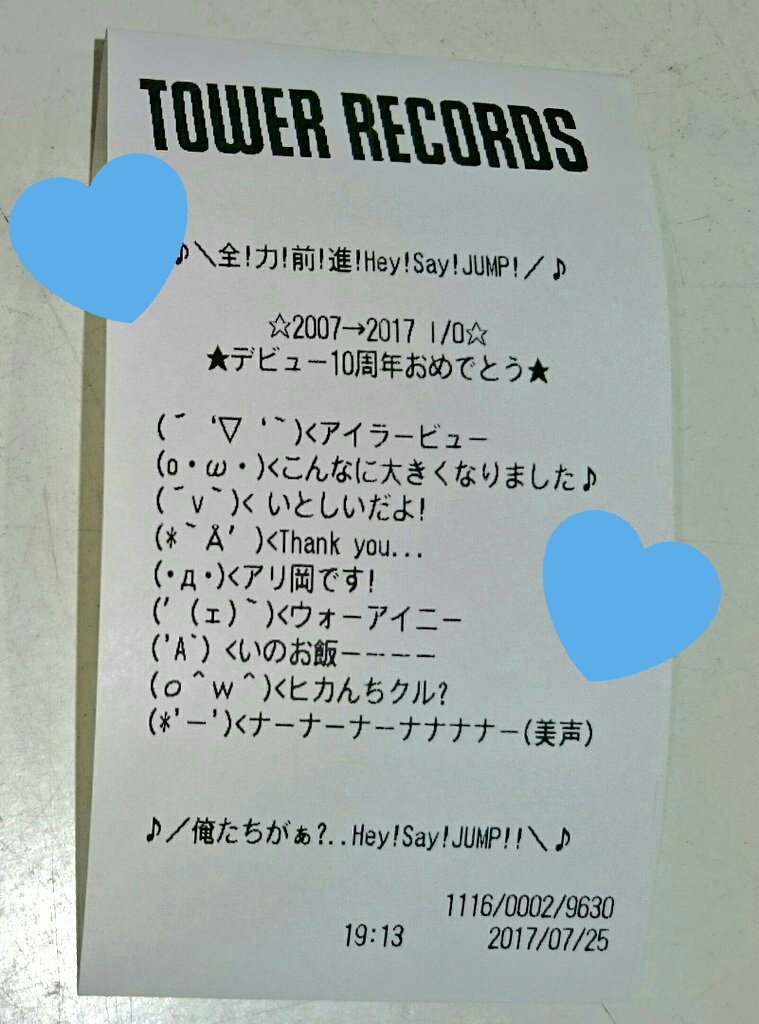 TOWER RECORDS
♪＼全!力!前!進!Hey!Say!JUMP!／♪
☆2007→2017 I/O☆
★デビュー10周年おめでとう★
(´ ‘▽ ‘｀)<アイラービュー
(o・ω・)<こんなに大きくなりました♪
(´v｀)< いとしいだよ!
(*｀Å′ )<Thank you...
(・д・)<アリ岡です!
(′(ェ)｀)<ウォーアイニー
('A`) <いのお飯ーーーー
(o＾w＾)<ヒカんちクル?
(*'－')<ナーナーナーナナナナー(美声)
♪／俺たちがぁ?..Hey!Say!JUMP!!＼♪
1116/0002/9630
19:13 2017/07/25